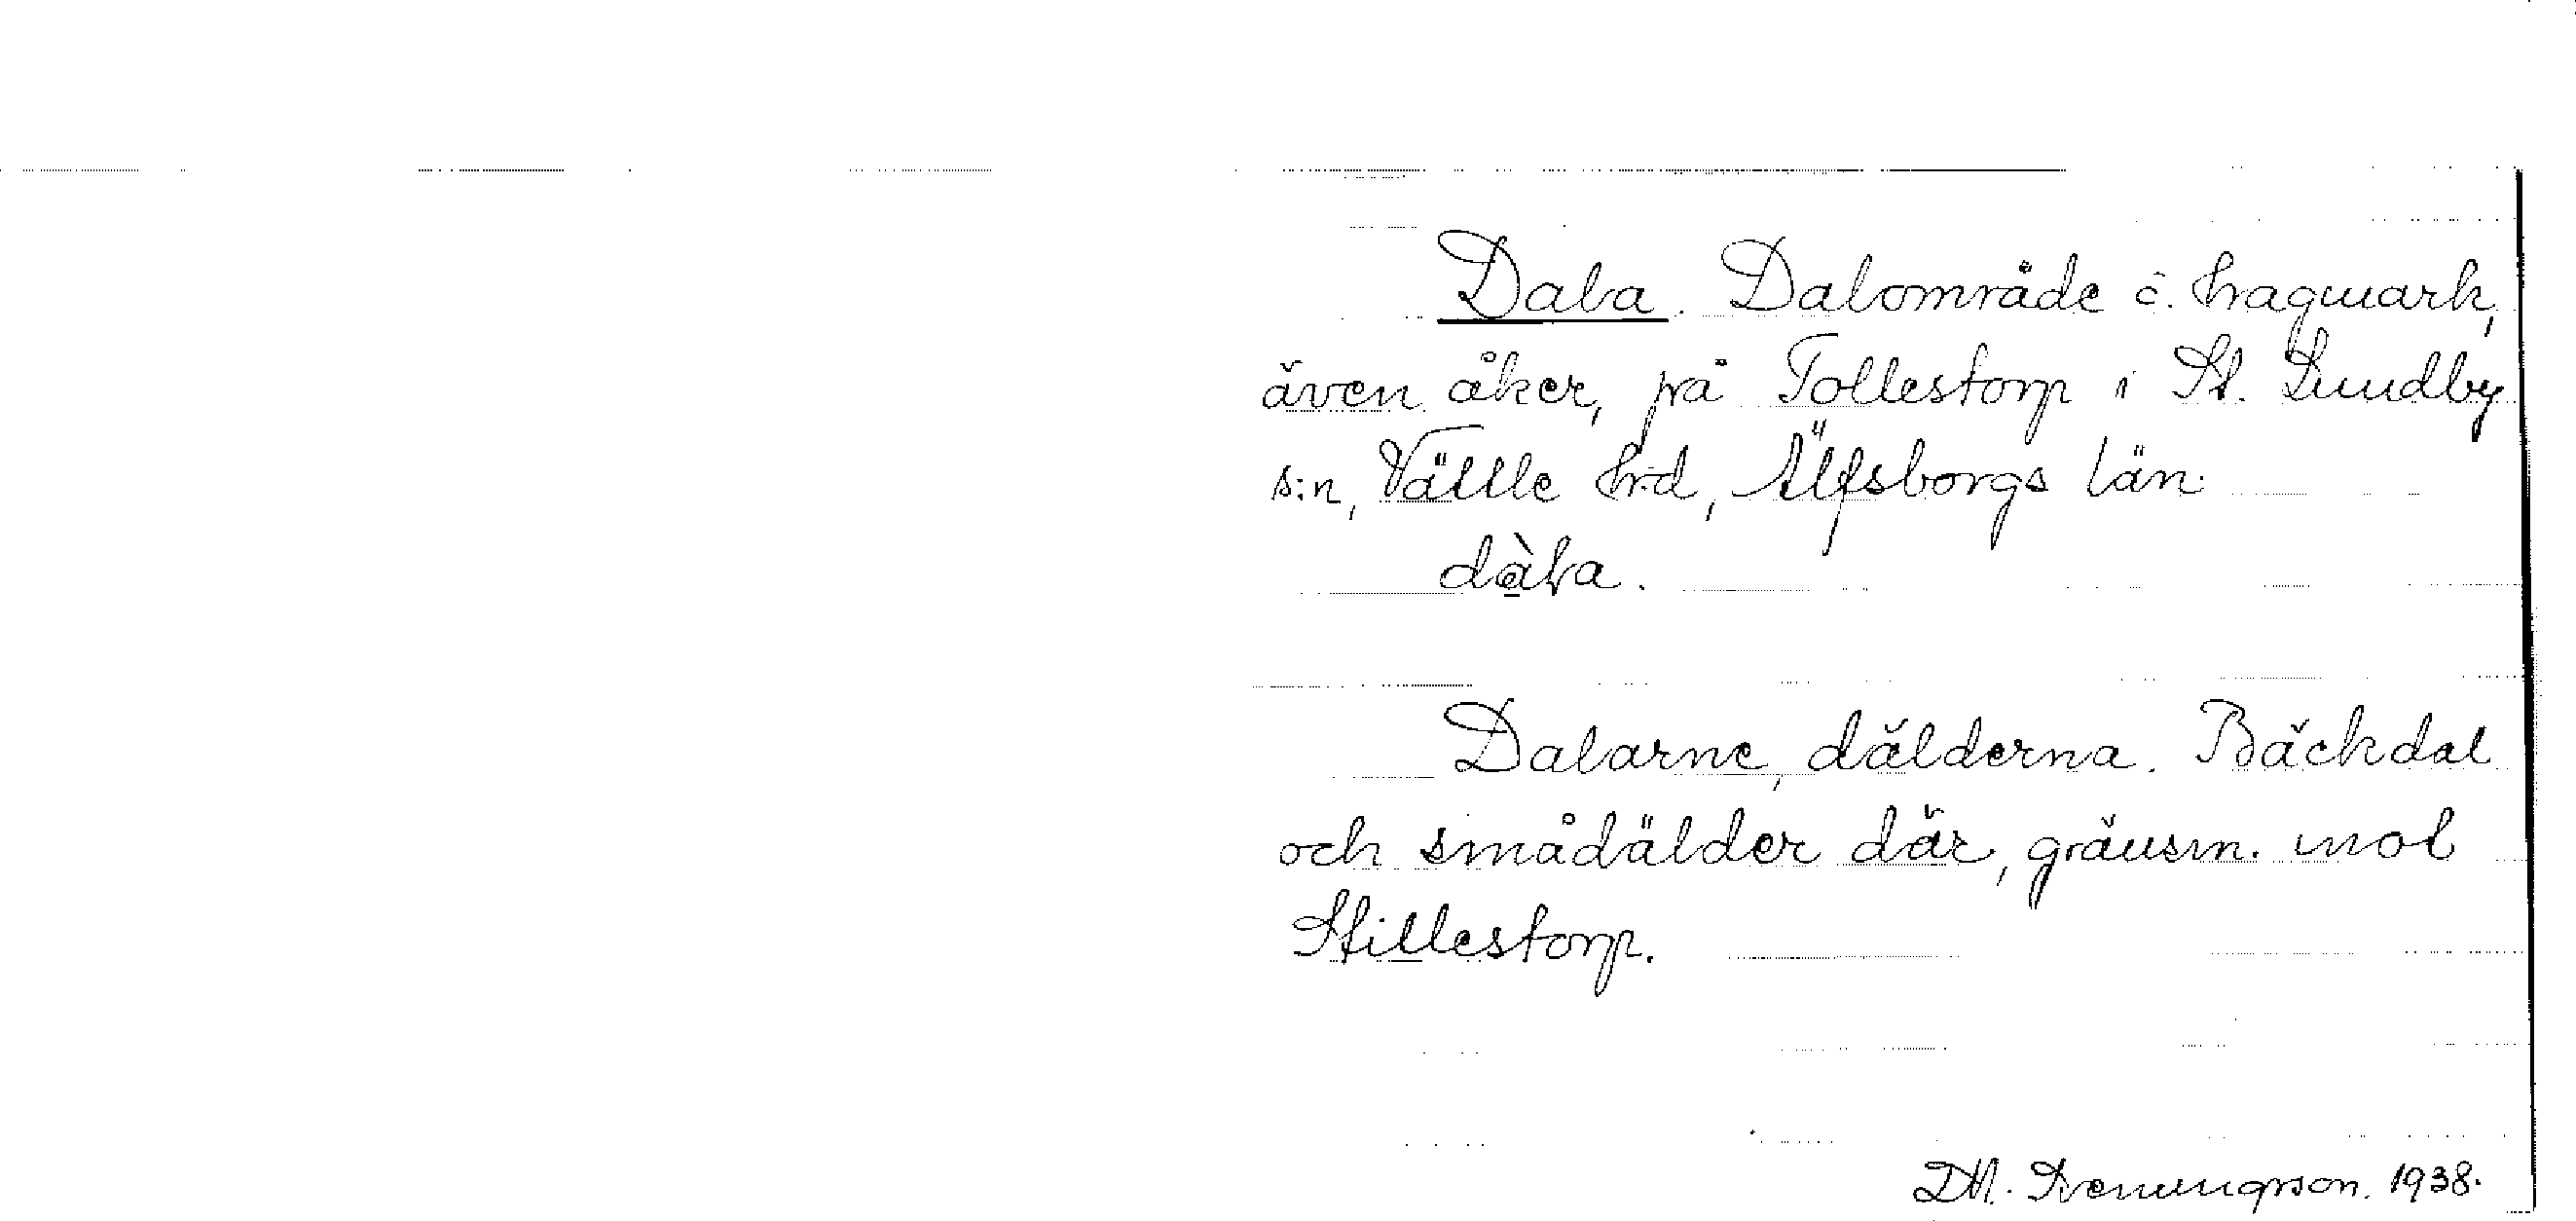 Dala. Dalområde o. hagmark,
även åker, på Tollestorp i St. Lundby
s:n, Vättle hrd, Älfsborgs län.
dàla.
Dalarne, dälderna. Bäckdal
och smådälder där, gränsm. mot
Stillestorp.
D. H. Svenungsson. 1938.